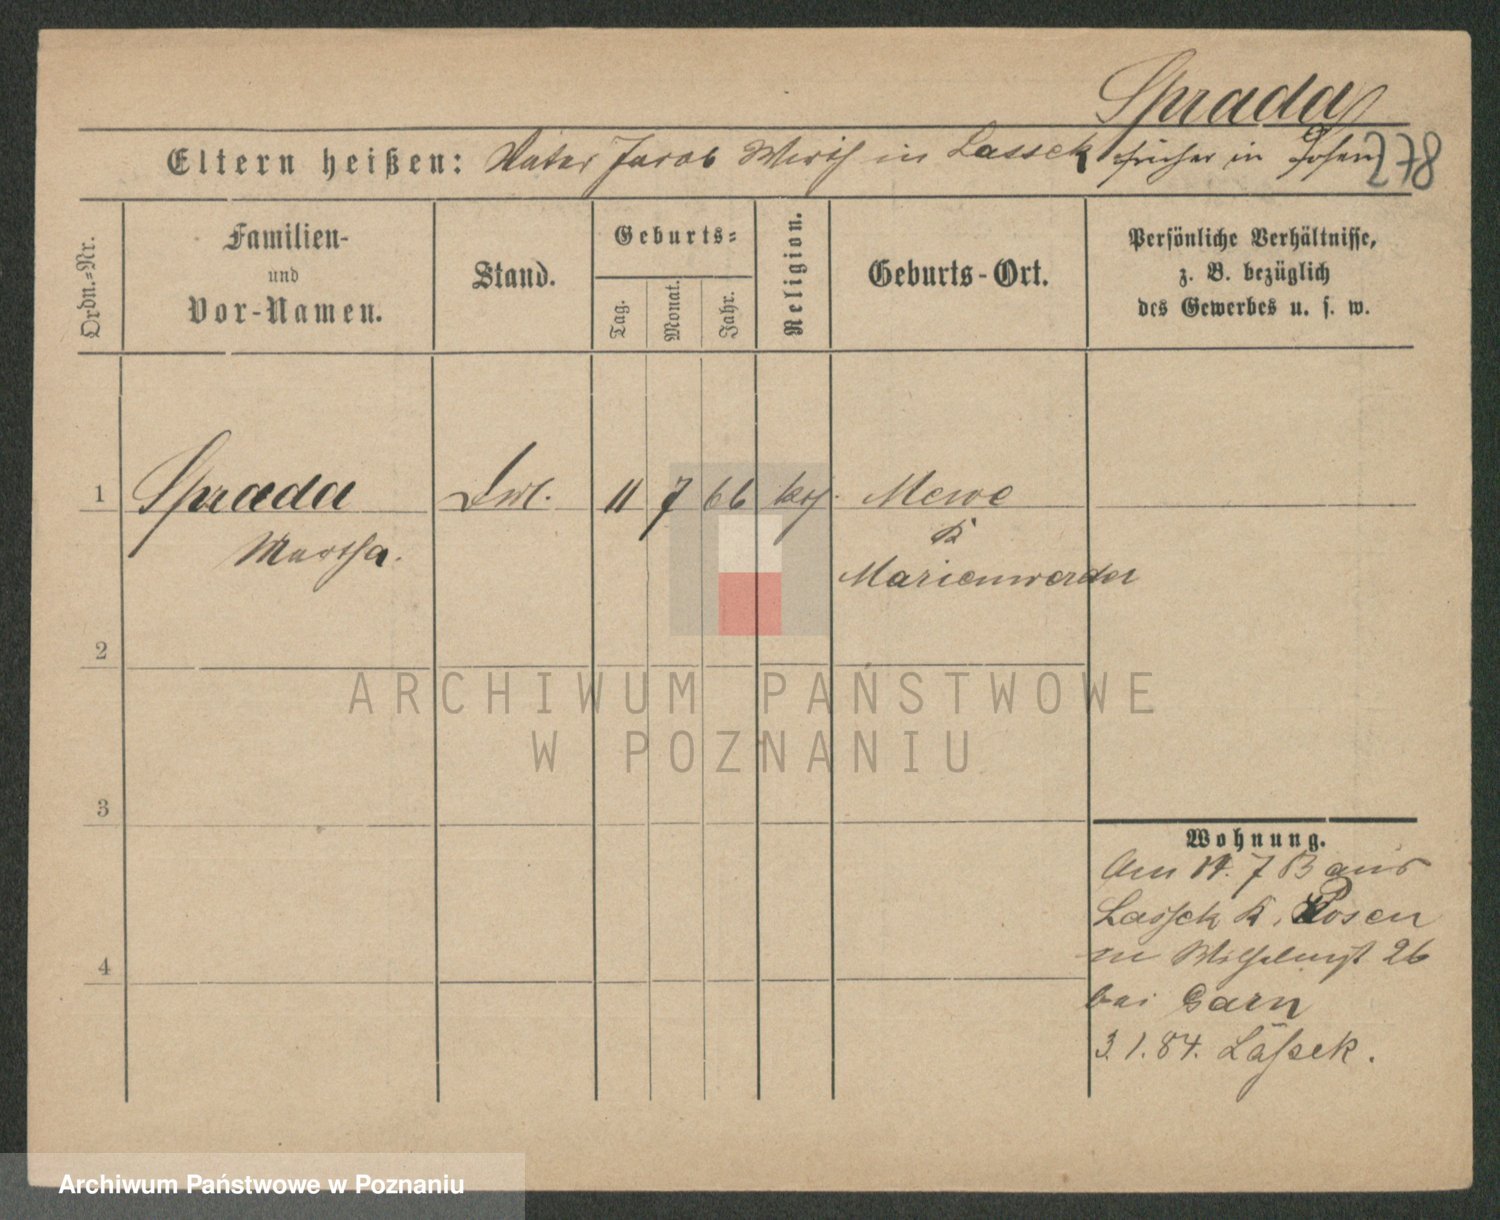 Sprada
Eltern heißen: Vater Jacob Wirth in Lassek früher in Posen
278
Ordn.-Nr.
Familien-
und
Vor-Namen.
Stand.
Geburts-
Tag.
Monat.
Jahr.
Religion.
Geburts-Ort.
Persönliche Verhältnisse,
z. B. bezüglich
des Gewerbes u. s. w.
1
Sprada 11 7 66 Mewe
Martha.
K
Marienwerder
2
3
4
Wohnung.
Am 14. 7 83 aus
Lassek K. Posen
26
bei Garn
3.1.84. Lassek.
ARCHIWUM PAŃSTWOWE
W POZNANIU
Archiwum Państwowe w Poznaniu